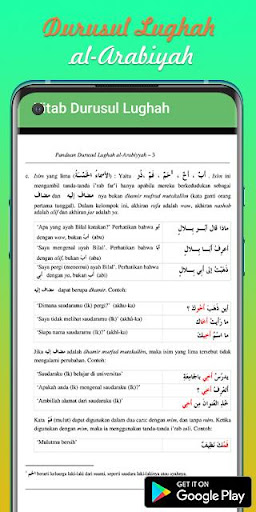 Durusul Lughah
al-Arabiyah
itab Durusul Lughah
Panduan Durusul Lughah al-Arabiyyah – 3
c. Isim yang lima (الأَسْمَاءُ الْخَمْسَةُ) : Yaitu أَبٌ ، أَخٌ ، حَمٌ ، فَمٌ ، ذُو . Isim ini
mengambil tanda-tanda i'rab far'i hanya apabila mereka berkedudukan sebagai
مضاف dan مضاف إليه nya bukan dhamir mufrad mutakallim (kata ganti orang
pertama tunggal). Dalam kelompok ini, akhiran rafa adalah waw, akhiran nashab
adalah alif dan akhiran jar adalah ya.
'Apa yang ayah Bilal katakan?' Perhatikan bahwa مَاذَا قَالَ أَبُو بِلَالٍ
dengan wau, bukan أَبُ (abu)
'Saya mengenal ayah Bilal'. Perhatikan bahwa أَعْرِفُ أَبَا بِلَالٍ
dengan alif, bukan أَبَ (aba)
'Saya pergi (menemui) ayah Bilal'. Perhatikan bahwa ذَهَبْتُ إِلَى أَبِي بِلَالٍ
dengan ya, bukan أَبِ (abi)
مضاف إليه dapat berupa dhamir. Contoh:
'Dimana saudaramu (lk) pergi?' (akhu-ka) أَيْنَ ذَهَبَ أَخُوكَ ؟
'Saya tidak melihat saudaramu (lk)' (akhâ-ka) مَا رَأَيْتُ أَخَاكَ
'Siapa nama saudaramu (lk)?' (akhî-ka) مَا اسْمُ أَخِيكَ
Jika مضاف إليه adalah dhamir mufrad mutakallim, maka isim yang lima tetap tidak
mengalami perubahan. Contoh:
'Saudaraku (lk) belajar di universitas' يَدْرُسُ أَخِي بِالْجَامِعَةِ
'Apakah anda (lk) mengenal saudaraku (lk)?' أَتَعْرِفُ أَخِي ؟
'Ambillah alamat dari saudaraku (lk)' خُذِ الْعُنْوَانَ مِنْ أَخِي
Kata فَمٌ (mulut) dapat digunakan dalam dua cara: dengan mim, dan tanpa mim. Jika
mim digunakan, maka ia menggunakan tanda-tanda i'rab asli. Contoh:
'Mulutmu bersih' فَمُكَ نَظِيفٌ
GET IT ON
Google Play